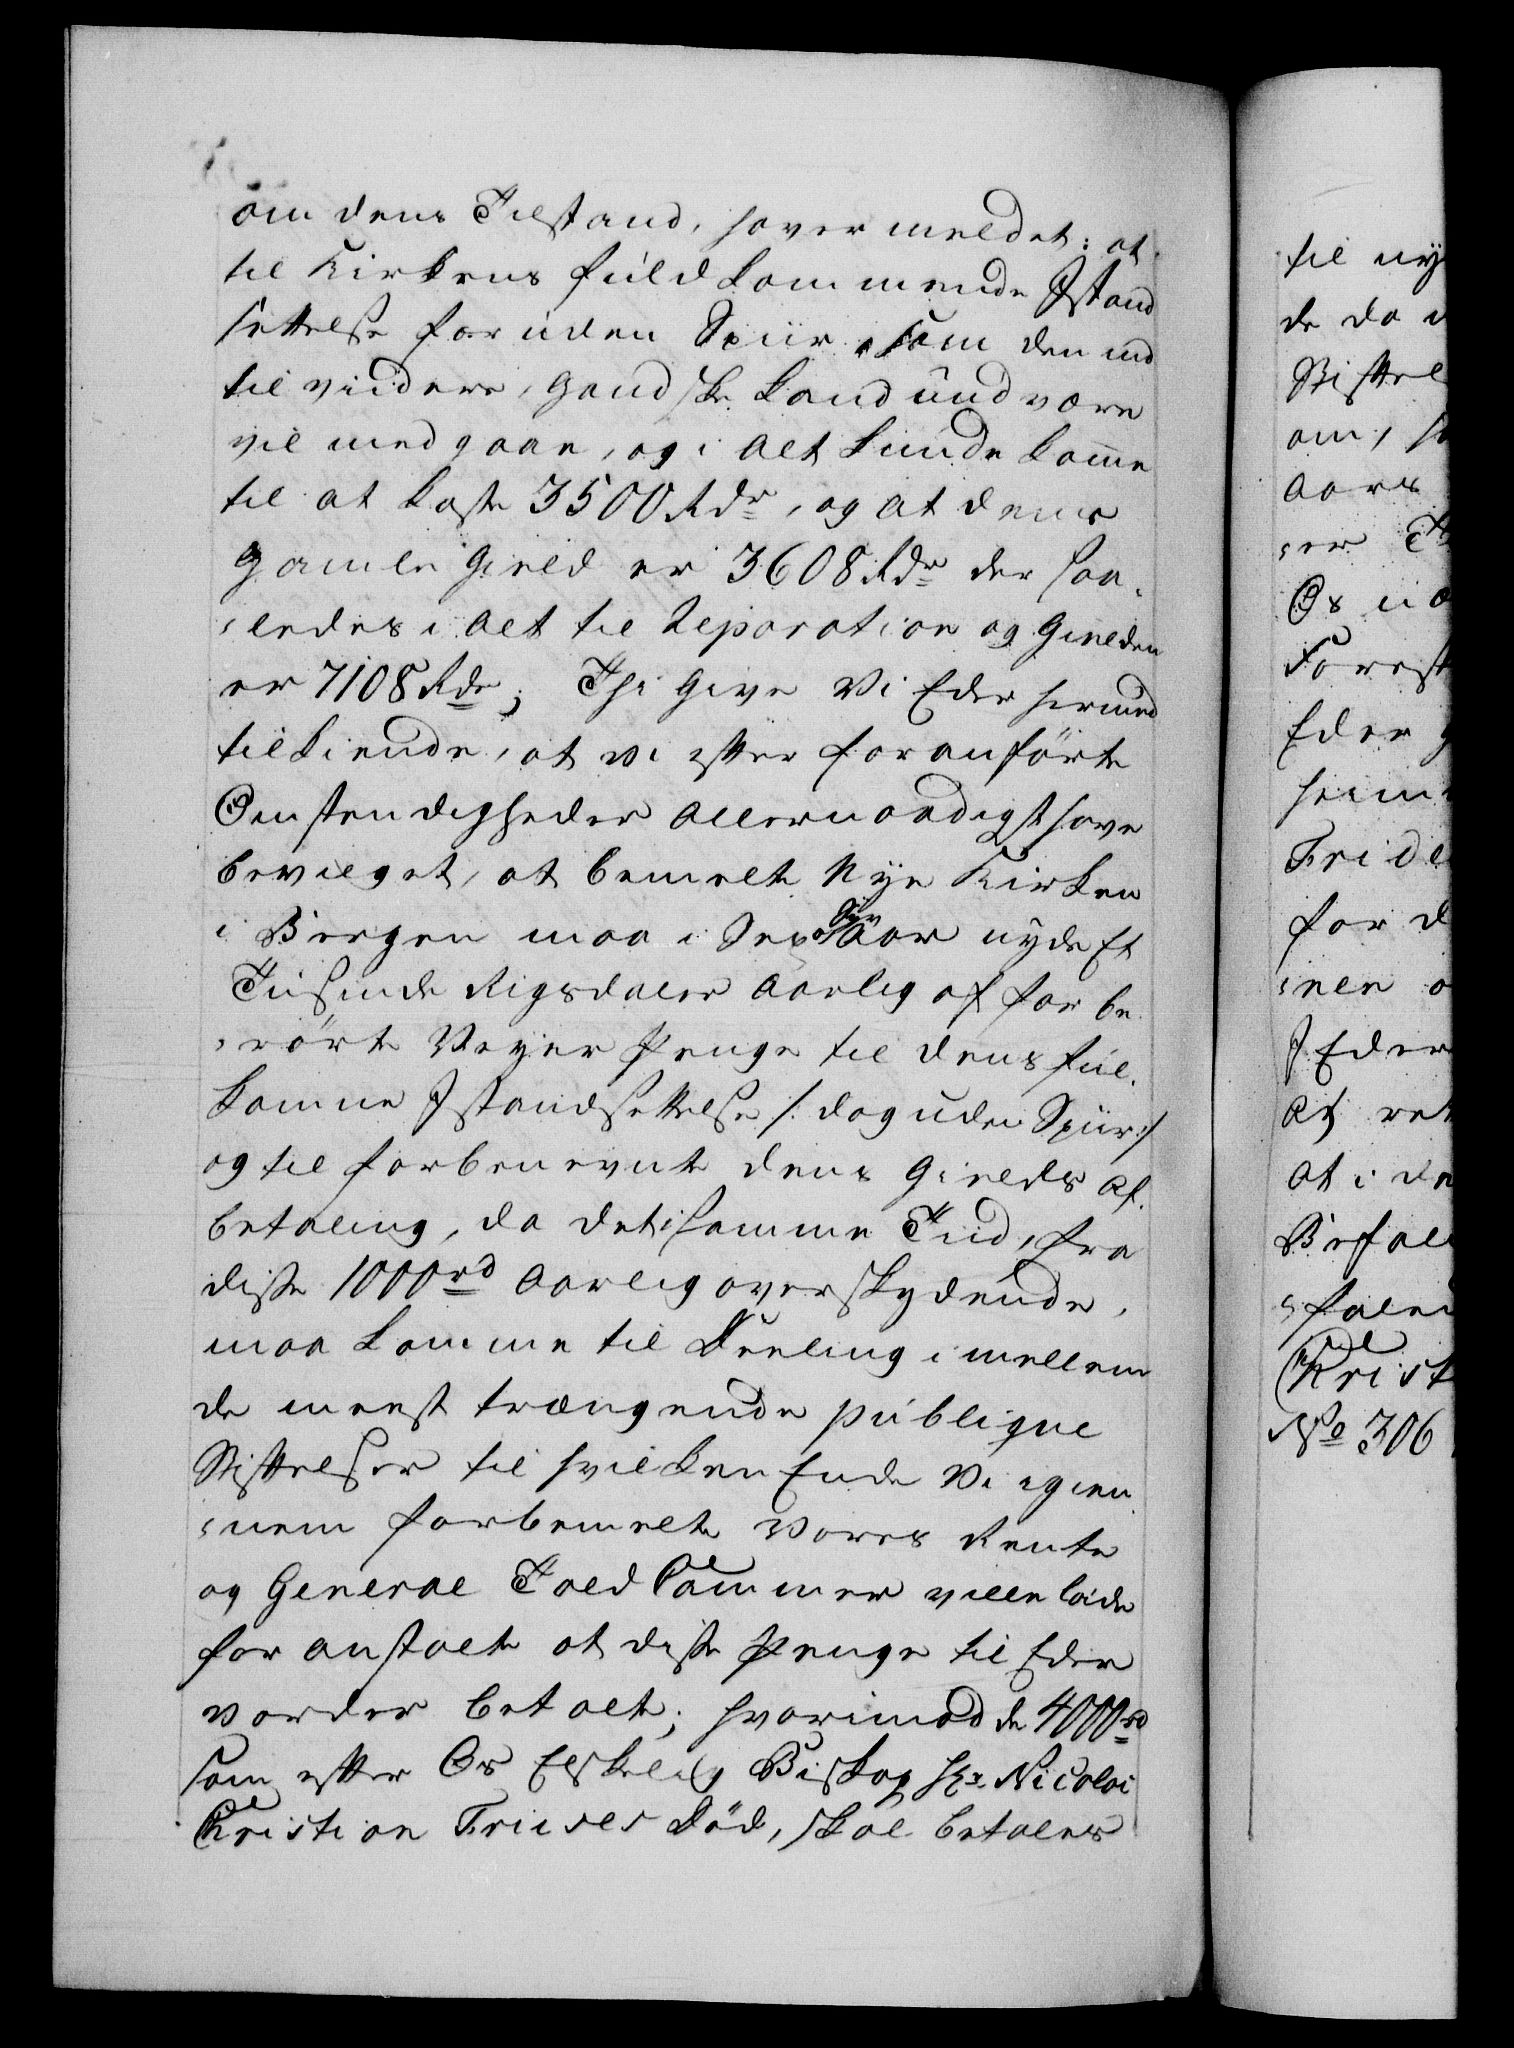 om dens Tilstand, haver meldet: at
til Kirkens fuldkommende Istand
settelse foruden Spiir, som den ind
til viidere, gandske kand undvære
vil medgaae, og i alt kunde komme
til at koste 3500 Rdr, og at dens
gamle Gield er 3608 Rdr der saa-
ledes i alt til Reparation og Gielden
er 7108 Rdr; Thi give Vi Eder hermed
tilkiende, at vi efter foranførte
Omstendigheder allernaadigst have
bevilget, at bemelte Nye Kirken
i Bergen maa i Sex a Syv Aar nyde Et
Tusinde Rigsdaler Aarlig af forbe-
rørte Veyer Penge til dens ful-
komne Istandsettelse /: dog uden Spiir :/
og til forbenevnte dens Gields af-
betaling, da det i samme Tiid, fra
disse 1000rd Aarlig overskydende,
maa komme til Deeling imellem
de meest trængende publique
Stiftelser til hvilken Ende Vi igien-
nem forbemelte Vores Rente
og General Told Cammer ville lade
foranstalte at disse Penge til Eder
vorder betalt; hvorimod de 4000rd
som efter Os Elskelig Biskop Hr. Nicolai
Christian Friises Død, skal betales
til ny
de da
Stiftel
om, s
Aars
er Th
Os u
Forest
Eder g
heim
Fride
for d
nen o
Eder
Af ret
At i de
Befal
falen
Christ
No 306